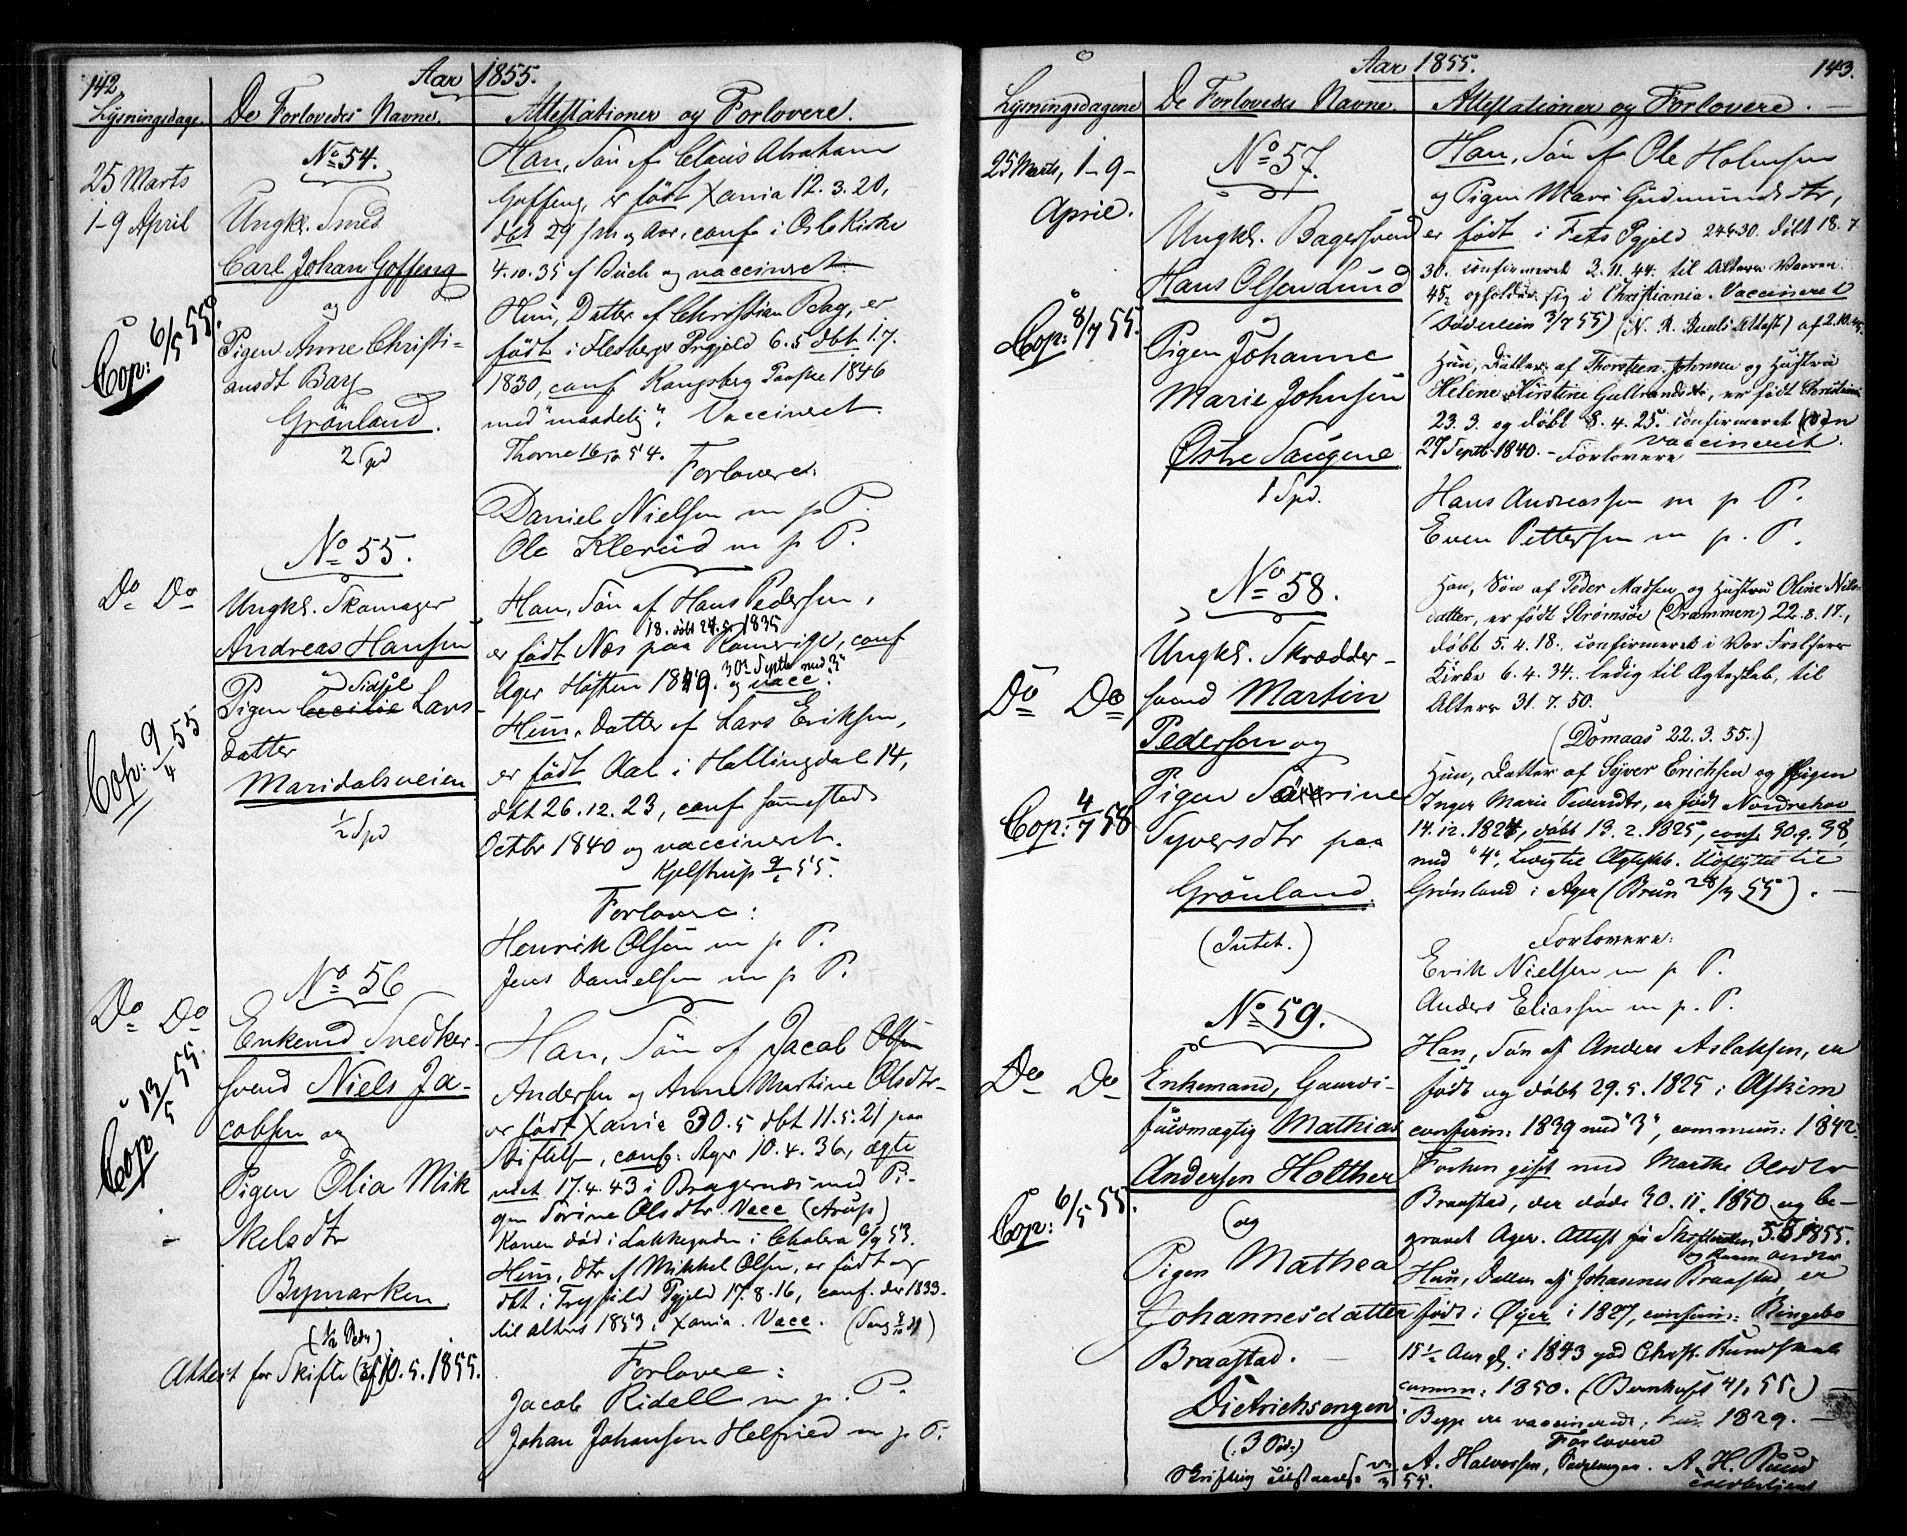 142.
Aar 1855.
Lysningsdage.
De Forlovedes Navne.
Attestationer og Forlovere.
25 Marts
1-9 April
Cop: 6/5 55.
No 54.
Ungk. Smed
Carl Johan Goffeng
og
Pigen Anne Christi-
ansdt Bay
Grönland.
2 Spd
Han, Sön af Claus Abraham
Goffeng, er født Xania 12.3.20,
dbt 29 s m og Aar, conf i Oslo Kirke
4.10.35 af Buch og vaccineret.
Hun, Datter af Christian Bag, er
født i Flesbergs Prgjeld 6.5 dbt 1.7.
1830, conf Kongsberg Paaske 1846
med "maadelig". Vaccineret.
Thorne 16/10 54.
Forlovere:
Daniel Nielsen m p P.
Ole Klerud m p P.
Do Do
Cop: 9/4 55
No 55.
Ungk. Skomager
Andreas Hansen
og Sidsel
Pigen Cecilie Lars-
datter
Maridalsveien
1/2 Spd
Han, Sön af Hans Pedersen,
18. döbt 27. 1835
er født Næs paa Romerige, conf
30te Septb med 3
Ager Høsten 1849. og vacc.
Hun, Datter af Lars Eriksen,
er født Aal i Hallingdal 14,
dbt 26.12.23, conf sammesteds
Octbr 1840 og vaccineret.
Kjelstrup 55.
Forlovere:
Henrik Olsen m p P.
Jens Danielsen m p P.
Do Do
Cop: 13/5 55.
No 56
Enkemd Snedker-
svend Niels Ja-
cobsen og
Pigen Olia Mik
kelsdtr
Bymarken
Attest for Skifte af 10.5.1855.
Han, Sön af Jacob Olsen
Andersen og Anne Martine Olsdtr-
er født Xania 30.5 dbt 11.5.21 paa
Stiftels, conf: Ager 10.4.36, ægte
viet 17.4.43 i Bragernæs med Pi-
gen Sorine Olsdtr. Vacc (Arup)
Konen død i Lakkegaden i Cholera 6/9 53.
Hun, dtr af Mikkel Olsen, er født og
dbt i Trysild Pgjeld 17.8.16, conf. der 1833.
til alters 1853 i Xania. Vacc.
Forlovere:
Jacob Ridell m. p. P.
Johan Johansen Helfried m p P.
Aar 1855.
143.
Lysningsdagene
De Forlovedes Navne.
Attestationer og Forlovere.
25 Marts, 1-9-
April.
Cop: 8/7 55.
No 57.
Ungk. Bagersvend
Hans Olsen Lund
og
Pigen Johanne
Marie Johnsen
Østre Saugene
1 Spd.
Han, Sön af Ole Holmsen
og Pigen Mari Gudmundsdtr,
er født i Fets Pgjeld 24 6 30. døbt 18.7
30. confirmeret 3.11.44. til Alters Vaaren
45, opholder sig i Christiania. Vaccineret
(Døderlein 3/7 55) (N. R. Attest) af 2.10.
Hun, Datter af Thorsteen Johnsen og Hustru
Helene Kirstine Gulbrandsdt., er født Christiania
23.3. og døbt 8.4.25. confirmeret
27 Septb 1840. vaccineret. - Forlovere
Hans Andreassen m p P.
Even Pettersen m p. P.
Do Do
Cop: 4/7 58
No 58.
Ungk. Skrædder-
svend Martin
Pedersen og
Pigen Søverine
Syversdtr paa
Grönland.
(Intet.)
Han, Sön af Peder Madsen og Hustru Oline Nils-
datter, er født Strømsöe (Drammen) 22.8.17.,
døbt 5.4.18., confirmeret i Vor Frelsers
Kirke 6.4.34. ledig til Ægteskab, til
Alters 31.7.50.
(Domaas 22.3.55.)
Hun, Datter af Syver Ericksen og Pigen
Inger Marie Siversdtr, er født Norderhov
14.12.1824, døbt 13.2.1825, conf. 30.9.38,
med "4", ledig til Ægtesk. Udflyttet til
Grønland i Ager (Brun 28/3 55).
Forlovere:
Erik Nielsen m p P.
Anders Eliassen m. p. P.
Do Do
Cop: 6/5 55.
No 59.
Enkemand, Gaards-
fuldmægtig Mathias
Andersen Holther
og
Pigen Mathea
Johannesdatter
Braastad.
Dietrichsengen
(3 Spd:)
Han, Sön af Anders Aslaksen, er
født og døbt 29.5.1825 i Askim
conferm: 1839 med "3", commun: 1842.
Forhen gift med Marthe Olsdtr
Braastad, der døde 30.11.1850 og be-
gravet Ager. Attest 5.5 1855.
Hun, Datter af Johannes Braastad, er
født i Øyer i 1827, conferm: Ringebo
15 1/2 Aar gl. i 1843 god Christ. Kundskab
commun: 1850. (Bernhoft 55)
Begge ere vaccinerede, hun 1829.
Forlovere
A. Halvorsen, A. H. Ruud